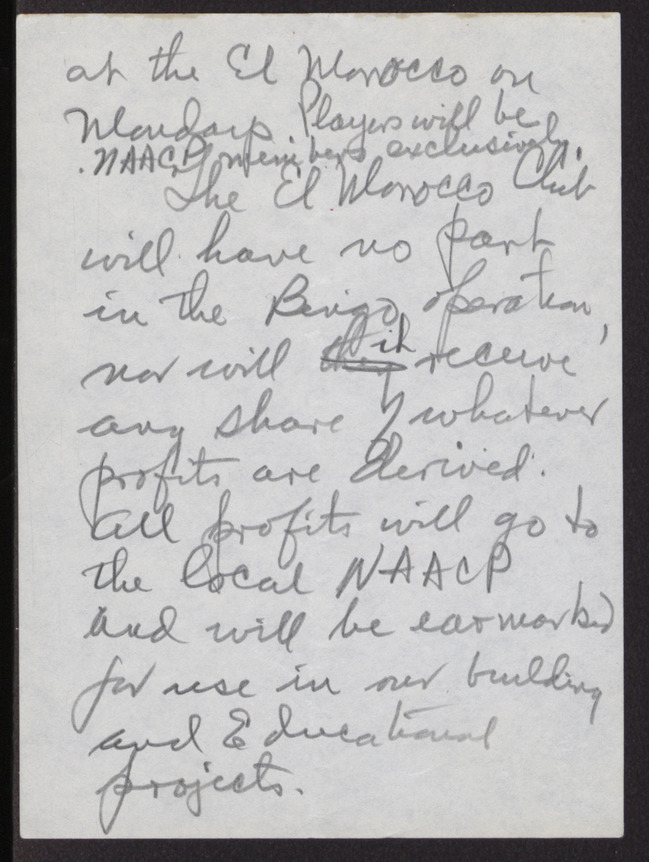 at the El Morocco on
Mondays. Players will be
NAACP members exclusively.
The El Morocco Club
will have no part
in the Bingo operation,
nor will it receive
any share of whatever
profits are derived.
All profits will go to
the local NAACP
and will be earmarked
for use in our building
and Educational
projects.